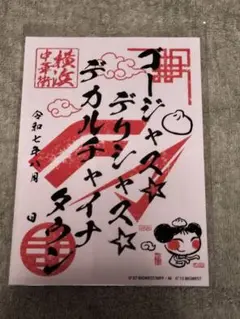 横浜
中華街
ゴージャス☆
デリシャス☆
デカルチャイナ
タウン
令和七年八月 日